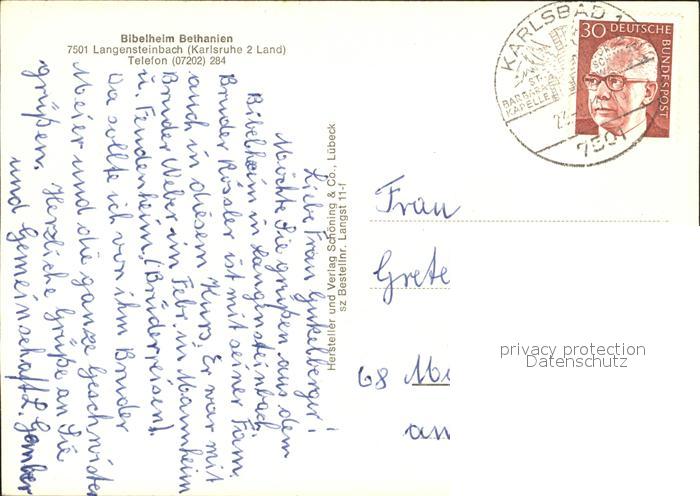 Bibelheim Bethanien
7501 Langensteinbach (Karlsruhe 2 Land)
Telefon (07202) 284
Liebe Frau Gunkelberger!
Möchte Sie grüßen aus dem
Bibelheim in Langensteinbach.
Bruder Rössler ist mit seiner Fam.
auch in diesem Kurs. Er war mit
Bruder Weber im Febr. in Mannheim
u. Feudenheim, (Brüderreisen).
Da sollte ich von ihm Bruder
Meier und die ganze Geschwister
grüßen. Herzliche Grüße an Sie
und Gemeinschaft L. Gember
Hersteller und Verlag Schöning & Co., Lübeck
sz Bestellnr. Langst 11-f
KARLSBAD 1
ST.
BARBARA
KAPELLE
7501
30 DEUTSCHE
BUNDESPOST
Frau
Grete
68
an
privacy protection
Datenschutz